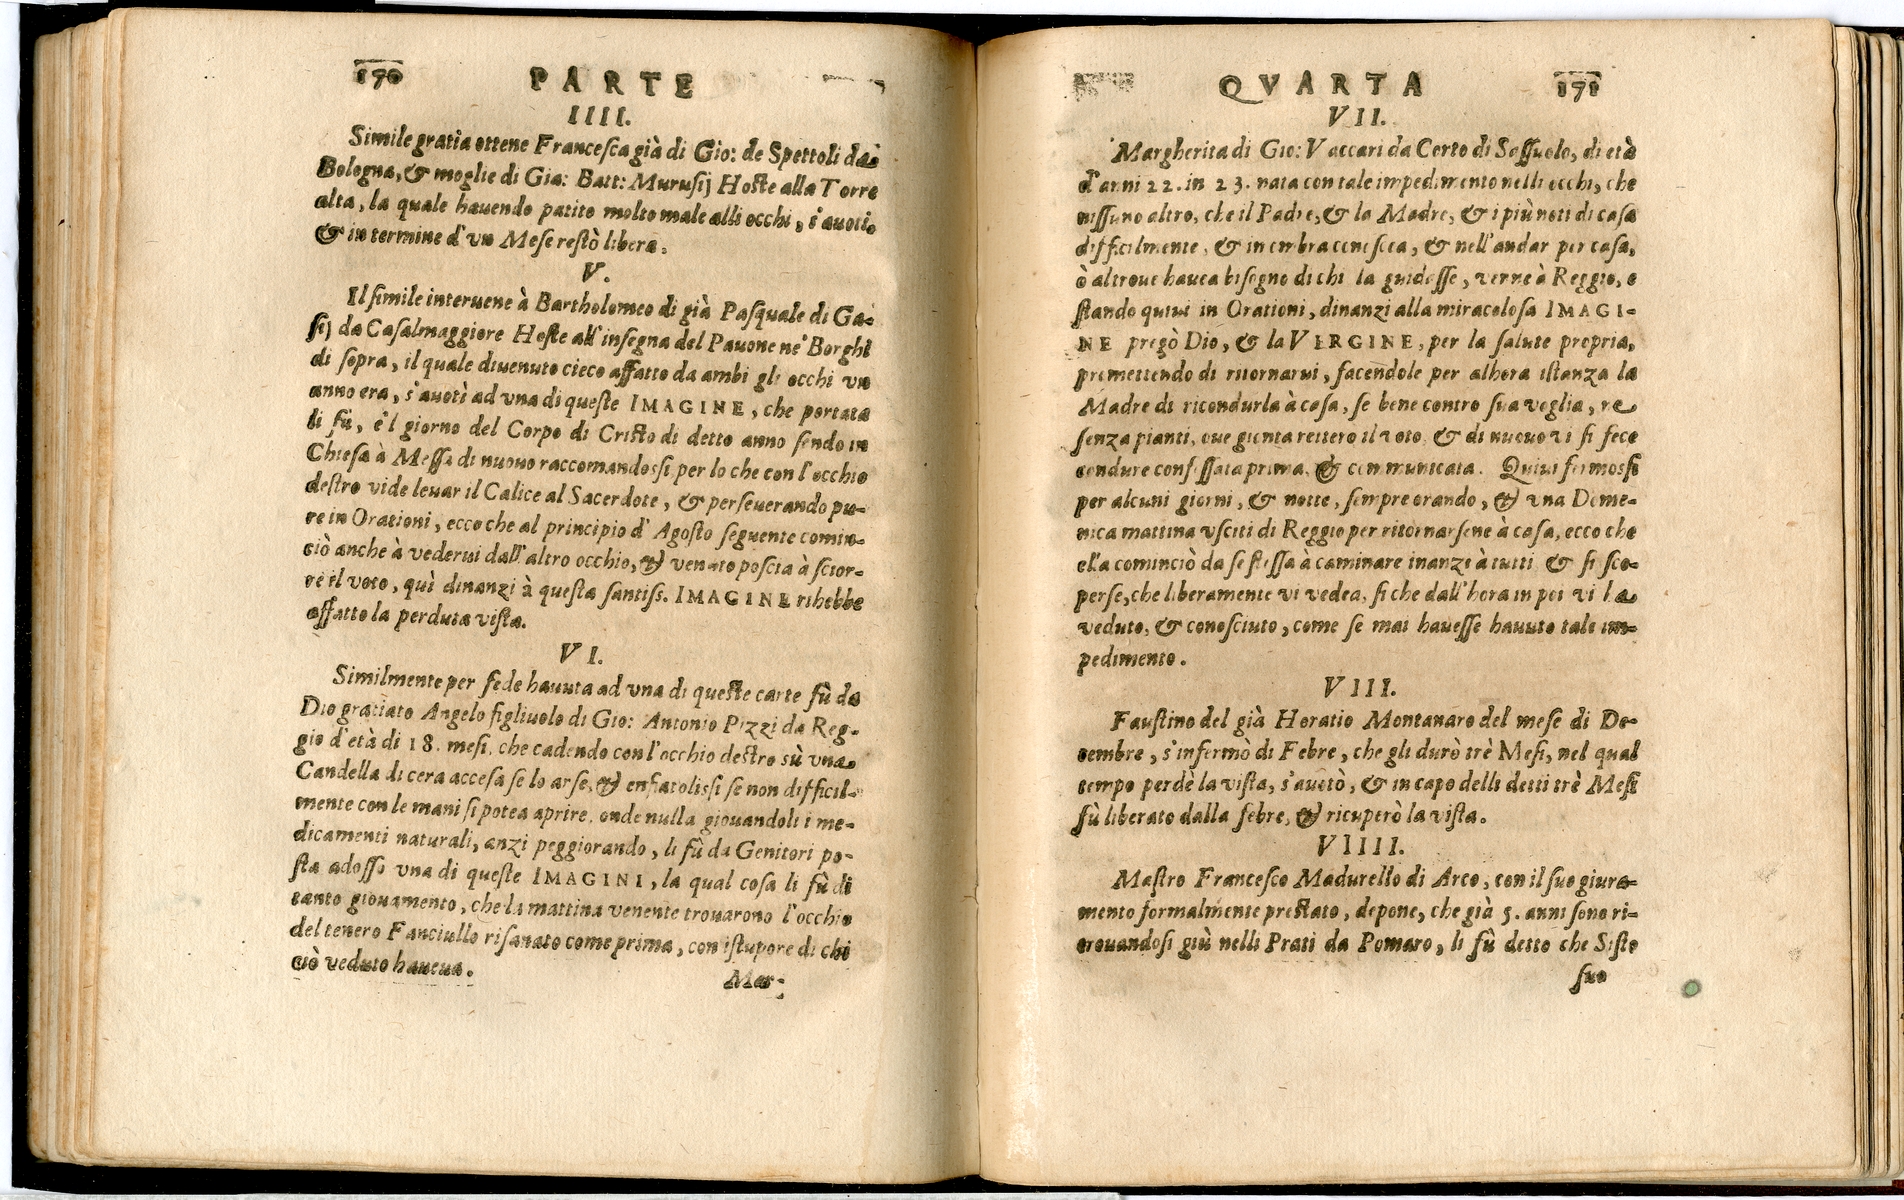 170 PARTE
IIII.
Simile gratia ottene Francesca già di Gio: de Spettoli da
Bologna, & moglie di Gia: Batt: Murusij Hoſte alla Torre
alta, la quale hauendo patito molto male alli occhi, s'auotò,
& in termine d'vn Meſe reſtò libera.
V.
Il ſimile interuene à Bartholomeo di già Paſquale di Ga-
ſij da Caſalmaggiore Hoſte all'inſegna del Pauone ne' Borghi
di ſopra, il quale diuenuto cieco affatto da ambi gli occhi vn
anno era, s'auotì ad vna di queſte IMAGINE, che portata
li fù, e'l giorno del Corpo di Criſto di detto anno ſendo in
Chieſa à Meſſa di nuouo raccomandossi, per lo che con l'occhio
deſtro vide leuar il Calice al Sacerdote, & perſeuerando pu-
re in Orationi, ecco che al principio d'Agoſto ſeguente comin-
ciò anche à vederui dall'altro occhio, & venuto poſcia à ſcior-
re il voto, quì dinanzi à queſta ſantiſs. IMAGINE rihebbe
affatto la perduta viſta.
VI.
Similmente per fede hauuta ad vna di queſte carte fù da
Dio gratiato Angelo figliuolo di Gio: Antonio Pizzi da Reg-
gio d'età di 18. meſi, che cadendo con l'occhio deſtro sù vna
Candella di cera acceſa ſe lo arſe, & enfiatoliſsi ſe non difficil-
mente con le mani ſi potea aprire, onde nulla giouandoli i me-
dicamenti naturali, anzi peggiorando, li fù da Genitori po-
ſta adoſſo vna di queſte IMAGINI, la qual coſa li fù di
tanto giouamento, che la mattina venente trouarono l'occhio
del tenero Fanciullo riſanato come prima, con iſtupore di chi
ciò veduto haueua.
Mar-
QVARTA 171
VII.
Margherita di Gio: Vaccari da Corto di Saſſuolo, di età
d'anni 22. in 23. nata con tale impedimento nelli occhi, che
niſſuno altro, che il Padre, & la Madre, & i più noti di caſa
difficilmente, & in ombra conoſcea, & nell'andar per caſa,
ò altroue hauea biſogno di chi la guidaſſe, venne à Reggio, e
ſtando quiui in Orationi, dinanzi alla miracoloſa IMAGI-
NE pregò Dio, & la VERGINE, per la ſalute propria,
promettendo di ritornarui, facendole per alhora iſtanza la
Madre di ricondurla à caſa, ſe bene contro ſua voglia, ne
ſenza pianti, oue gionta reitero il voto, & di nuouo vi ſi fece
condure confeſſata prima, & communicata. Quiui fermosſi
per alcuni giorni, & notte, ſempre orando, & vna Dome-
nica mattina vſciti di Reggio per ritornarſene à caſa, ecco che
ella cominciò da ſe ſteſſa à caminare inanzi à tutti & ſi ſco-
perſe, che liberamente vi vedea, ſi che dall'hora in poi vi ha
veduto, & conoſciuto, come ſe mai haueſſe hauuto tale im-
pedimento.
VIII.
Fauſtino del già Horatio Montanaro del meſe di De-
cembre, s'infermò di Febre, che gli durò trè Meſi, nel qual
tempo perdè la viſta, s'auotò, & in capo delli detti trè Meſi
fù liberato dalla febre, & ricuperò la viſta.
VIIII.
Maſtro Franceſco Madurello di Arco, con il ſuo giura-
mento formalmente preſtato, depone, che già 5. anni ſono ri-
trouandoſi giù nelli Prati da Pomaro, li fù detto che Siſto
ſuo